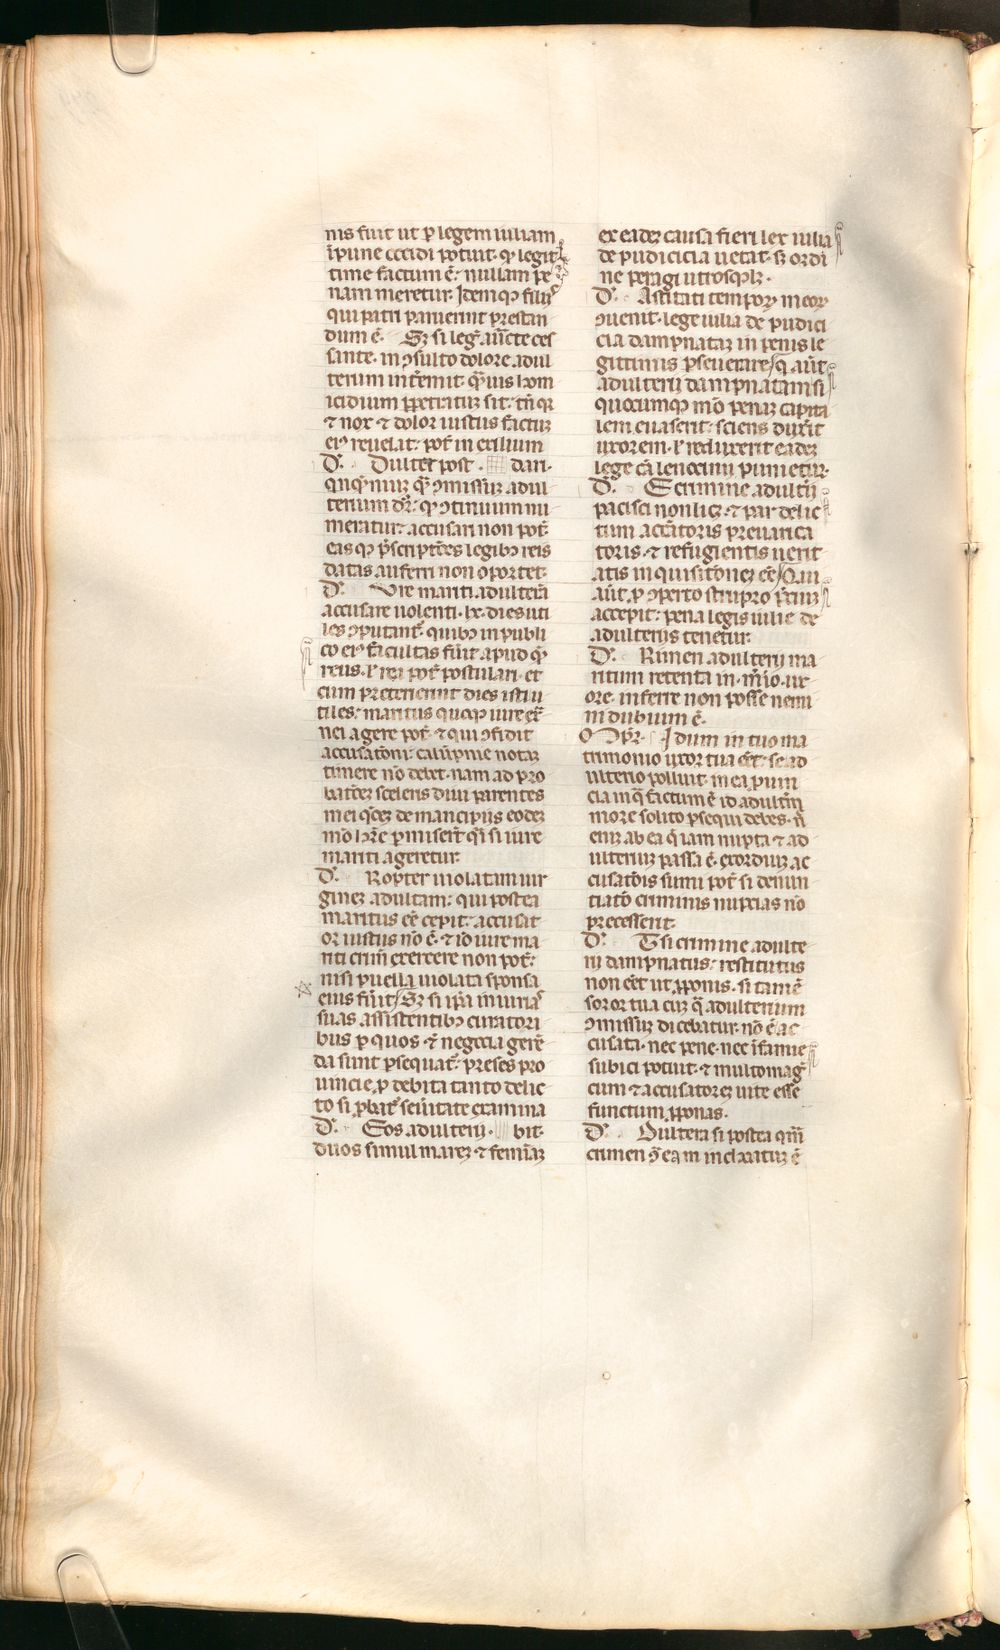 nis fuit ut ꝑ legem iuliam
ĩpune occidi potuit· ꝙ legit
time factum ẽ· nullam pe
nam meretur· Idemqꝫ filiis
qui patri paruerint prestan
dum ẽ· Sꝫ si leg̃ auc̃te ces
sante· in ↄsulto dolore adul
terum intẽmit· q̃uis hom
icidium ꝑpetratũ sit· tñ qꝛ
⁊ nox ⁊ dolor iustus factũ
eiꝰ reuelat· pot̃ in exilium
D̃· Dulter post · dari·
qñqueñniũ q̃ ↄmissũ adul
terium dr̃· ꝙ ↄtinuum nu
meratur· accusari non pot̃
easqꝫ p̃scriptões legibꝫ reis
datas auferri non oportet·
D̃· Vre mariti adulterã
accusare uolenti· lx· dies uti
les ↄputant̃· quibꝫ in publi
co eiꝰ facultas fuit apud q̃
reus· ł rea pot̃ postulari· et
cum preterierint dies isti u
tiles· maritus quoqꝫ iure ex̃
nei agere pot̃· ⁊ qui ↄfidit
accusatõni· calũpnie notaꝫ
timere nõ debet· nam ad pro
batõeꝫ sceleris diui parentes
mei q̃oꝫ de mancipiis eodeꝫ
mõ hr̃e ꝑmiserũt q̃i si iure
mariti ageretur·
D̃· Ropter uiolatam uir
gineꝫ adultam· qui postea
maritus eẽ cepit· accusat
or iustus nõ ẽ· ⁊ iõ iure ma
riti crim̃ exercere non pot̃·
nisi puella uiolata sponsa
eius fuit Sꝫ si ip̃a iniurias
suas assistentibꝫ curatori
bus ꝑ quos ⁊ negocia gerẽ
da sunt ꝑsequat̃· preses pro
uincie ꝓ debita tanto delic
to si ꝓbat̃ seũitate examina
D̃· Eos adulterij · bit·
duos simul mareꝫ ⁊ feminaꝫ
ex eadeꝫ causa fieri lex iulia
de pudicicia uetat· sꝫ ordi
ne peragi utrosqꝫ lꝫ·
D̃· Astitati temporꝝ meorꝝ
ↄuenit· lege iulia de pudici
cia dampnataꝫ in penis le
gittimis ꝑseuerare q̃ aut̃
adulterij dampnatam si
quocumqꝫ mõ penaꝫ capita
lem euaserit· sciens duxerit
uxorem· ł reduxerit eadeꝫ
lege cã lenocinij punietur·
D̃· E crimine adulterij
pacisci non licꝫ· ⁊ par delic
tum accusatoris preuarica
toris· ⁊ refugientis uerit
atis inquisitõneꝫ eẽ Qui
aut̃ ꝓ ↄperto stupro p̃ciuꝫ
accepit· pena legis iulie de
adulterijs tenetur·
D̃· Rimen adulterij ma
ritum retenta in m̃rio ux
ore· inferre non posse nemi
ni dubium ẽ·
Ompr̃· I dum in tuo ma
trimonio uxor tua eẽt· se ad
ulterio polluit· in ea ꝓuin
cia in q̃ factum ẽ id adulteriũ
more solito ꝑsequi debes· ñ
eniꝫ ab ea q̃ iam nupta ⁊ ad
ulteriuꝫ passa ẽ· exordiuꝫ ac
cusatõis sumi pot̃· si denun
tiatõ criminis nupcias nõ
precesserit·
D̃· Tsi crimine adulte
rij dampnatus· restitutus
non eẽt ut ꝓponis· si tamẽ
soror tua cuꝫ q̃ adulterium
ↄmissuꝫ dicebatur· nõ ẽ ac
cusata· nec pene· nec ĩfamie
subici potuit· ⁊ multomag̃
cum ⁊ accusatoreꝫ uite esse
functum ꝓponas·
D̃· Dultera si postea q̃
crimen